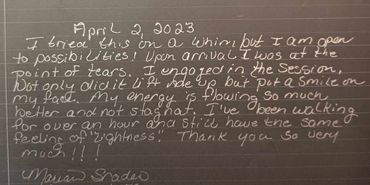 April 2, 2023
I tried this on a whim but I am open
to possibilities! Upon arrival I was at the
point of tears. I engaged in the Session,
Not only did it lift me up but put a smile on
my face. My energy is flowing so much
better and not stagnat. I've been walking
for over an hour and still have the same
feeling of "Lightness." Thank you so very
much!!!